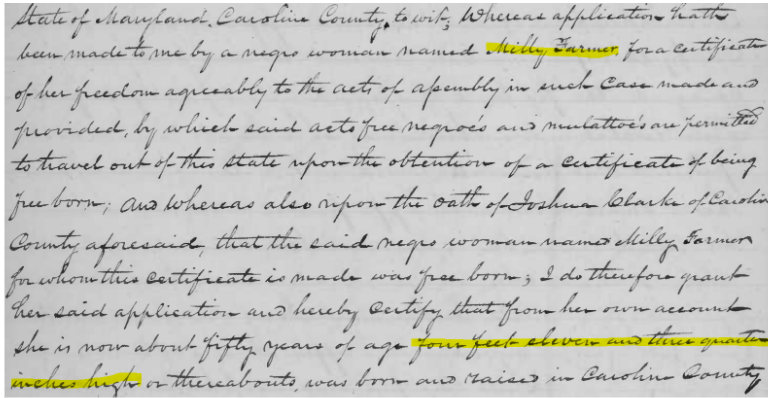 State of Maryland, Caroline County, to wit; Whereas application hath
been made to me by a negro woman named Milly Farmer, for a certificate
of her freedom agreeably to the acts of assembly in such case made and
provided, by which said acts free negroe's and mulatto's are permitted
to travel out of this state upon the obtention of a certificate of being
free born; and whereas also upon the oath of Joshua Clarke of Caroline
County aforesaid, that the said negro woman named Milly Farmer
for whom this certificate is made was free born; I do therefore grant
her said application and hereby certify that from her own account
she is now about fifty years of age four feet eleven and three quarter
inches high or thereabouts, was born and raised in Caroline County